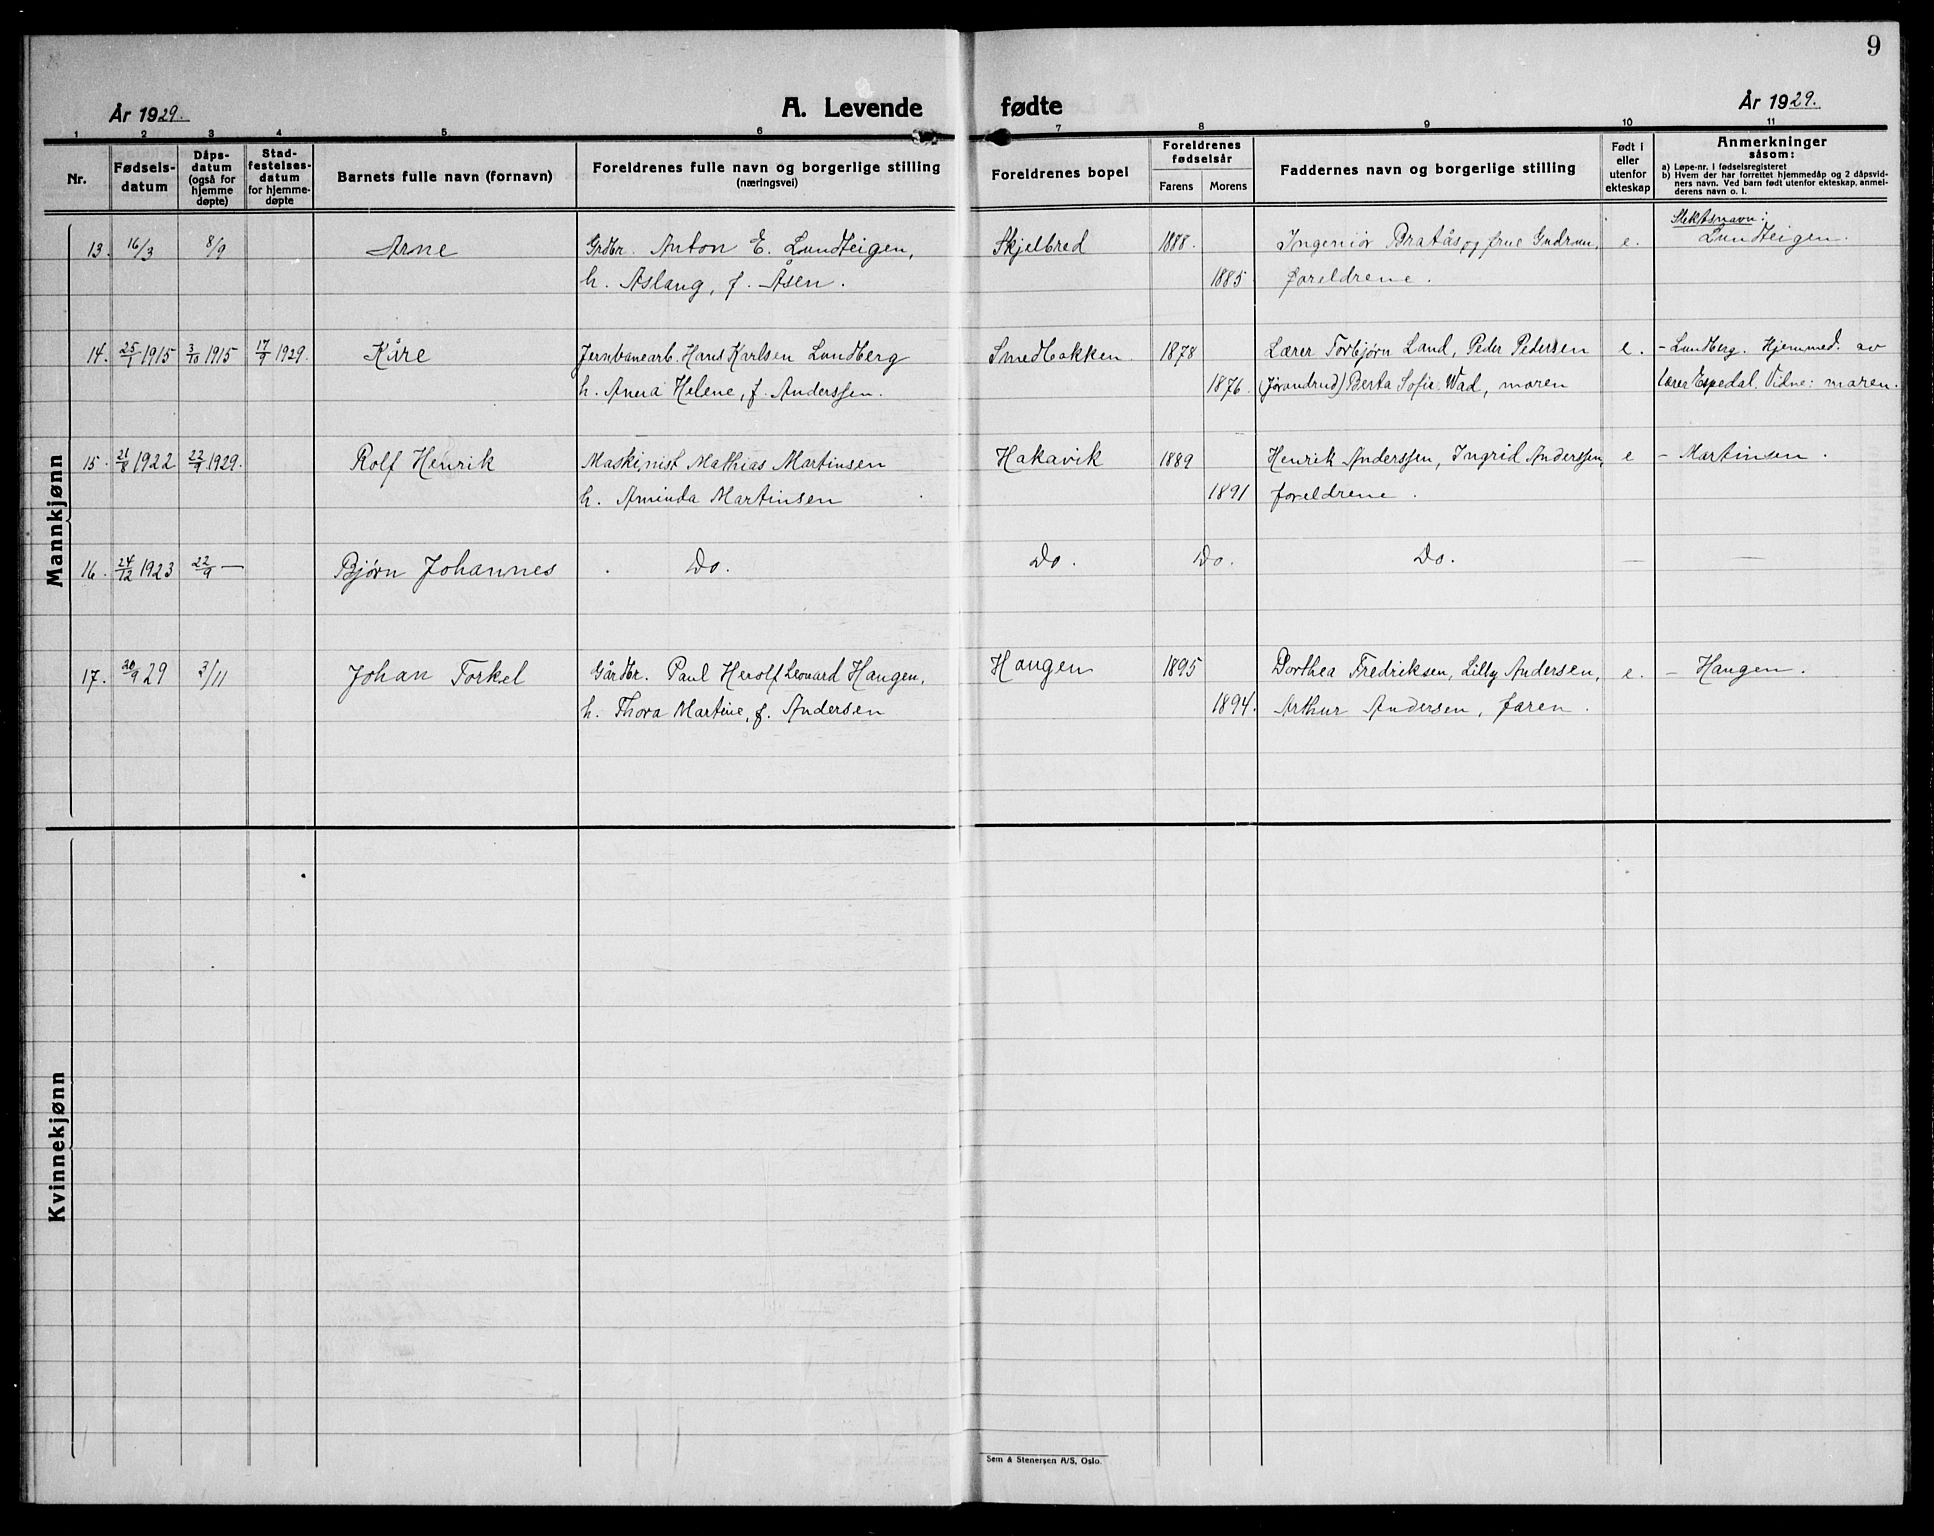 9
År 1929.
A. Levende fødte
År 1929.
1 2 3 4 5 6 7 8 9 10 11
Nr.
Fødsels-
datum
Dåps-
datum
(også for
hjemme
døpte)
Stad-
festelses-
datum
for hjemme-
døpte
Barnets fulle navn (fornavn)
Foreldrenes fulle navn og borgerlige stilling
(næringsvei)
Foreldrenes bopel
Foreldrenes
fødselsår
Farens Morens
Faddernes navn og borgerlige stilling
Født i
eller
utenfor
ekteskap
Anmerkninger
såsom:
a) Løpe-nr. i fødselsregisteret
b) Hvem der har forrettet hjemmedåp og 2 dåpsvid-
ners navn. Ved barn født utenfor ekteskap, anmel-
derens navn o. l.
Mannkjønn
Slektsnavn:
13. 16/3 8/9 Arne Grdbr. Anton E. Lundteigen, Skjelbred 1888. Ingeniør Bratås og frue Gudrun, e. Lundteigen.
h. Aslaug, f. Åsen. 1885 foreldrene.
14. 25/1 1915 3/10 1915 17/9 1929. Kåre Jernbanearb. Hans Karlsen Lundberg Smedbakken. 1878 Lærer Torbjørn Land, Peder Pedersen e. - Lundberg. Hjemmed. av
h. Anna Helene, f. Anderssen. 1876. (Jørandrud) Berta Sofie Wad, moren lærer Espedal. Vidne: moren.
15. 21/8 1922 22/9 1929. Rolf Henrik Maskinist Mathias Martinsen Hakavik 1889 Henrik Anderssen, Ingrid Anderssen, e - Martinsen.
h. Aminda Martinsen 1891 foreldrene.
16. 24/12 1923 22/9 — Bjørn Johannes Do. Do. Do. Do. — —
17. 20/9 29 3/11 Johan Torkel Gårdbr. Paul Herolf Leonard Haugen, Haugen 1895 Dorthea Fredriksen, Lilly Andersen, e. - Haugen.
h. Thora Martine, f. Andersen 1894. Arthur Andersen, faren.
Kvinnekjønn
Sem & Stenersen A/S, Oslo.